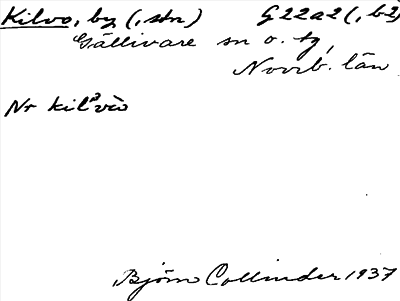 Kilvo, by (, stn) G22a2(, b2)
Gällivare sn o. tg,
Norrb. län
Nr kilᵊvò
Björn Collinder 1937